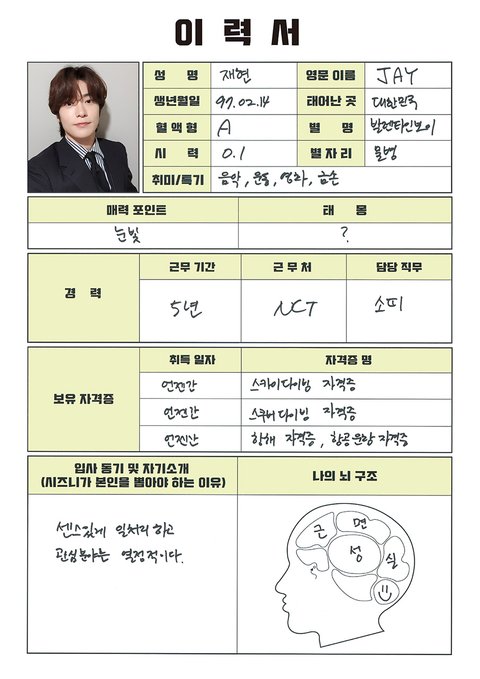 이력서
성 명 재현 영문 이름 JAY
생년월일 97.02.14 태어난 곳 대한민국
혈액형 A 별 명 발렌타인보이
시 력 0.1 별자리 물병
취미/특기 음악, 운동, 영화, 금손
매력 포인트 태 몽
눈빛 ?
경 력 근무 기간 근 무 처 담당 직무
5년 NCT 소피
보유 자격증 취득 일자 자격증 명
언젠간 스카이다이빙 자격증
언젠간 스쿠버다이빙 자격증
언젠간 항해 자격증, 항공운항 자격증
입사 동기 및 자기소개
(시즈니가 본인을 뽑아야 하는 이유)
센스있게 일처리 하고
관심분야는 열정적이다.
나의 뇌 구조
근 면
성 실